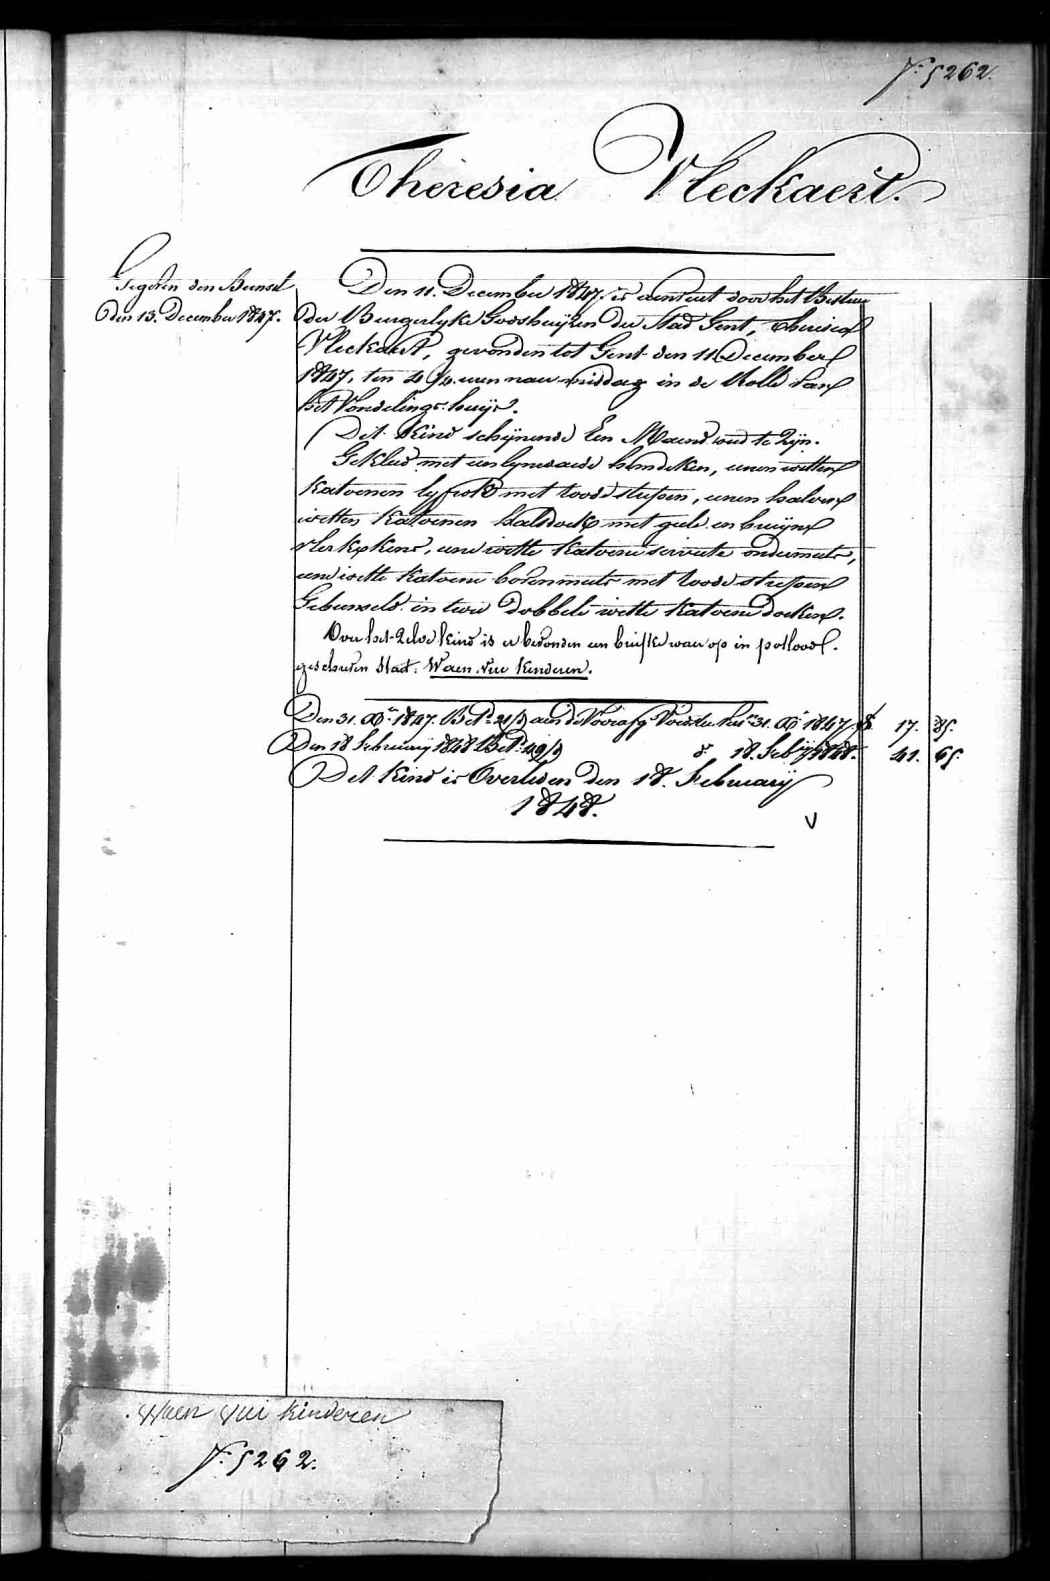 N.° 5262.
Theresia Vleckaert.
Gegeven den Bunsel
Den 13. December 1847.
Den 11. December 1847. is aenveert door het Bestuur
der Burgerlyke Godshuyzen der Stad Gent, Theresia
Vleckaert, gevonden tot Gent den 11 December
1847, ten 4 1/4 uren naer middag in de Rolle van
het Vondelings-huys.
Dit Kind schynende Een Maend oud te Zyn.
Gekleed met een lynwaede hemdeken, eenen witten
Katoenen lyfrok met roode streepen, eenen halven
witten Katoenen halsdoek met geele en bruyne
vlekskens, eene witte katoene servute ondermuts,
eene witte katoene bovenmuts met roode streepen
Gebunseld in twee dobbele witte katoene doeken.
Over het Zelve kind is er bevonden een briefke waer op in potlood
geschreven staet: Waen vee kinderen.
Den 31. Xb. 1847. Bet. 21/9 aen de Voorafg Voedster tot 31. Xb 1847 f 17. 85.
Den 18 February 1848 Bet. 49/9 d° 18. Feby 1848. 41. 65.
Dit Kind is Overleden den 18. February
1848.
V
Waen vee kinderen
N.° 5262.